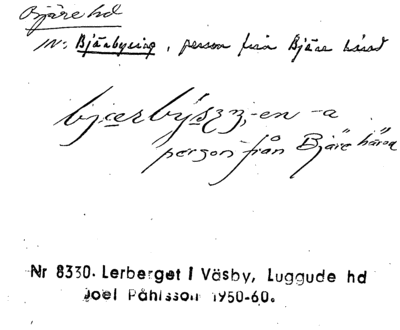 Bjäre hd
m: Bjärbysing, person från Bjäre härad
-en -a
person från Bjäre härad
Nr 8330. Lerberget i Väsby, Luggude hd
Joel Påhlsson 1950-60.